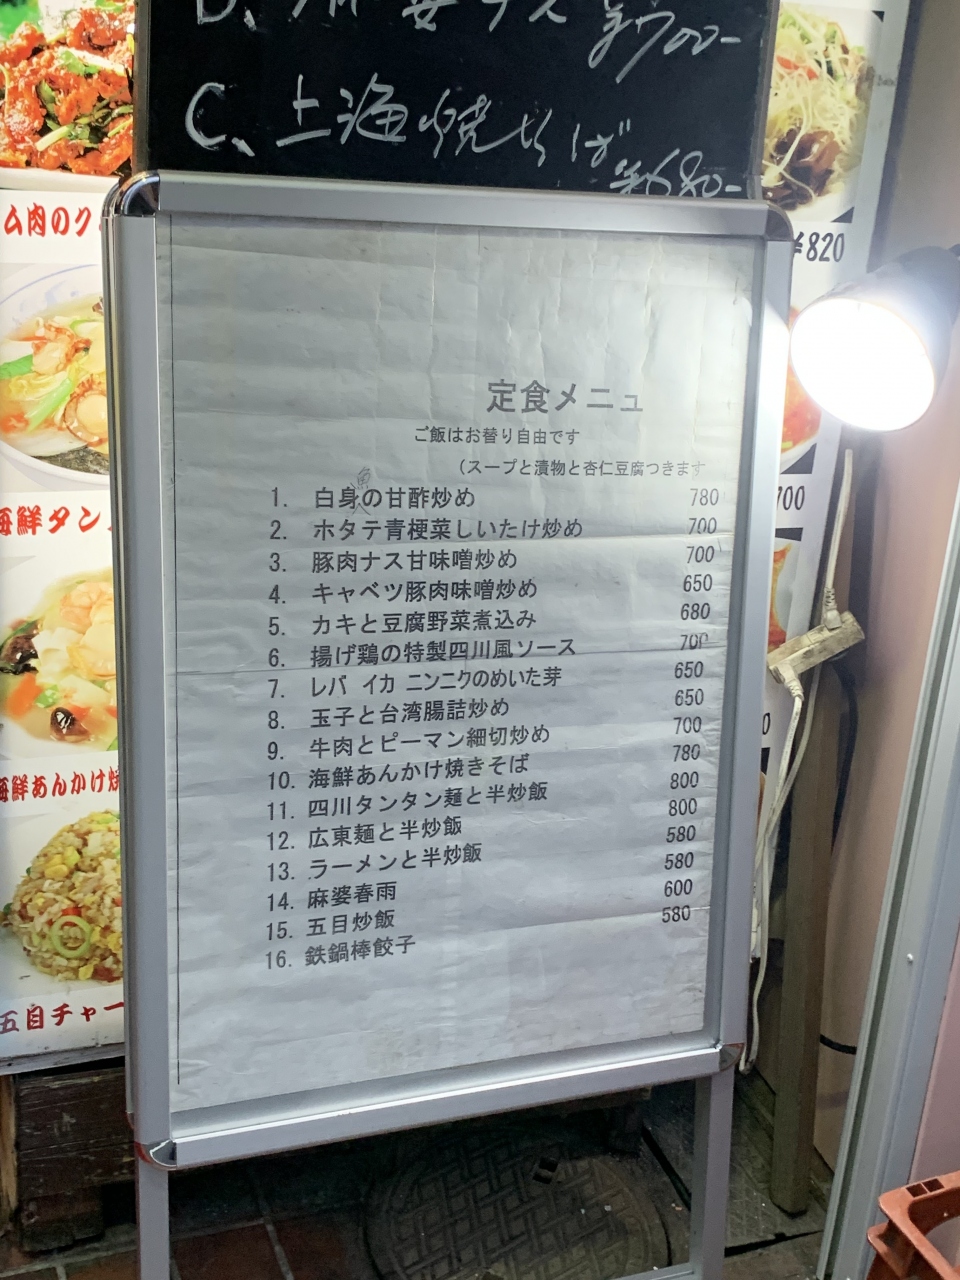 ¥700-
C、上海焼そば
¥680-
ム肉のク
¥820
海鮮タン
700
海鮮あんかけ焼
五目チャー
定食メニュ
ご飯はお替り自由です
（スープと漬物と杏仁豆腐つきます
魚
1. 白身の甘酢炒め 780
2. ホタテ青梗菜しいたけ炒め 700
3. 豚肉ナス甘味噌炒め 700
4. キャベツ豚肉味噌炒め 650
5. カキと豆腐野菜煮込み 680
6. 揚げ鶏の特製四川風ソース 700
7. レバ イカ ニンニクのめいた芽 650
8. 玉子と台湾腸詰炒め 650
9. 牛肉とピーマン細切炒め 700
10. 海鮮あんかけ焼きそば 780
11. 四川タンタン麺と半炒飯 800
12. 広東麺と半炒飯 800
13. ラーメンと半炒飯 580
14. 麻婆春雨 580
15. 五目炒飯 600
16. 鉄鍋棒餃子 580